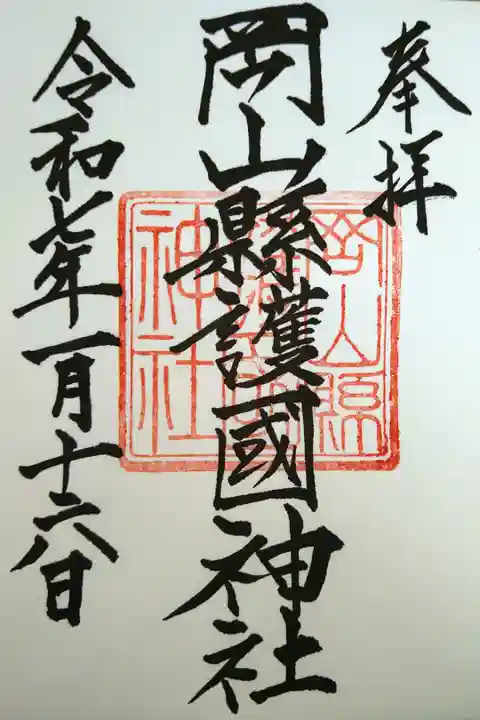 奉拝
岡山縣護國神社
岡山縣護國神社
令和七年一月十六日